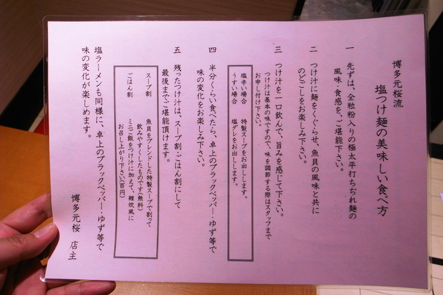 博多元桜流
塩つけ麺の美味しい食べ方
一 先ずは、全粒粉入りの極太平打ちぢれ麺の
風味・食感をご堪能下さい。
二 つけ汁に麺をくぐらせ、魚貝の風味と共に
のどごしをお楽しみ下さい。
三 つけ汁を一口飲んで、旨みを感じて下さい。
つけ汁は基本の味ですので、味を調節する際はスタッフまで
お申し付け下さい。
塩辛い場合 特製スープをお出しします。
うすい場合 塩ダレをお出しします。
四 半分くらい食べたら、卓上のブラックペッパー・ゆず等で
味の変化をお楽しみ下さい。
五 残ったつけ汁は、スープ割・ごはん割にして
最後までご堪能頂けます。
スープ割 魚貝をブレンドした特製スープで割って
飲みやすくしたものです(無料)
ごはん割 ミニご飯をつけ汁に加えて、雑炊風に
お召し上がり下さい(百円)
塩ラーメンも同様に、卓上のブラックペッパー・ゆず等で
味の変化が楽しめます。
博多元桜 店主